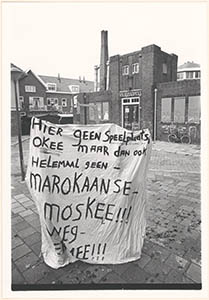 HIER GEEN SPEELPLAATS
OKEE MAAR DAN OOK
HELEMAAL GEEN -
MAROKAANSE-
MOSKEE!!!
WEG-